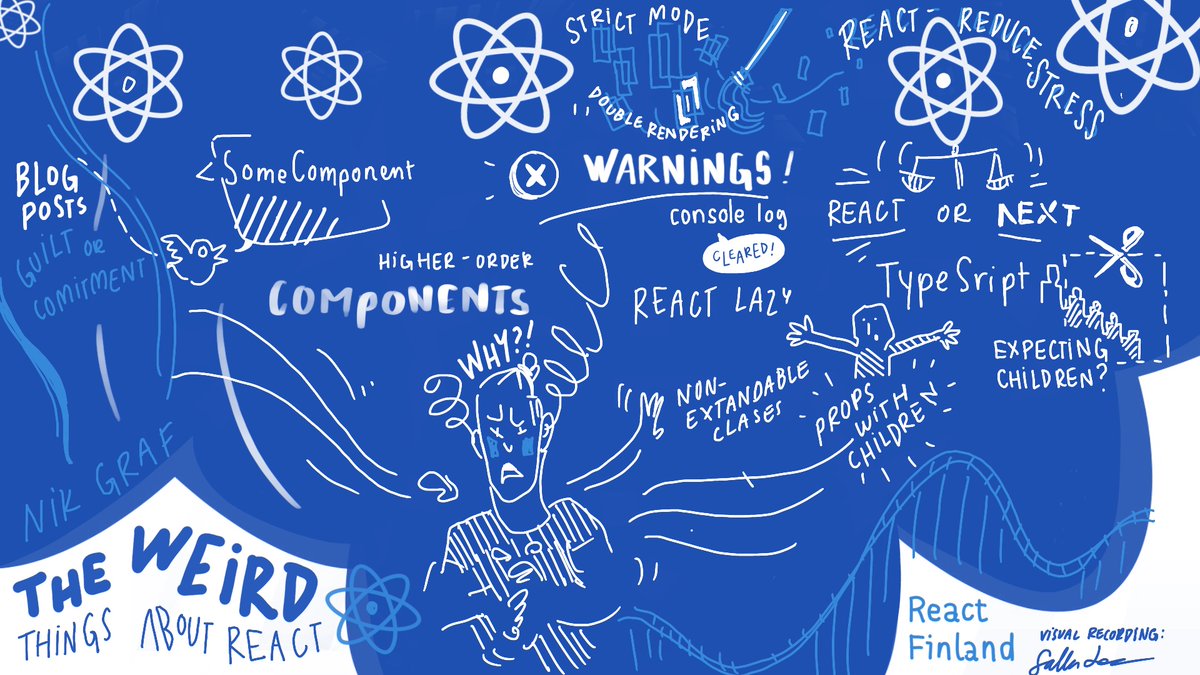 STRICT MODE
DOUBLE RENDERING
REACT-REDUCE-STRESS
BLOG
POSTS
GUILT OR
COMITMENT
<SomeComponent
WARNINGS!
console log
CLEARED!
REACT OR NEXT
HIGHER-ORDER
COMPONENTS
REACT LAZY
TypeSript
EXPECTING
CHILDREN?
WHY?!
NON-
EXTANDABLE
CLASES
PROPS
WITH
CHILDREN
NIK GRAF
THE WEIRD
THINGS ABOUT REACT
React
Finland
VISUAL RECORDING: